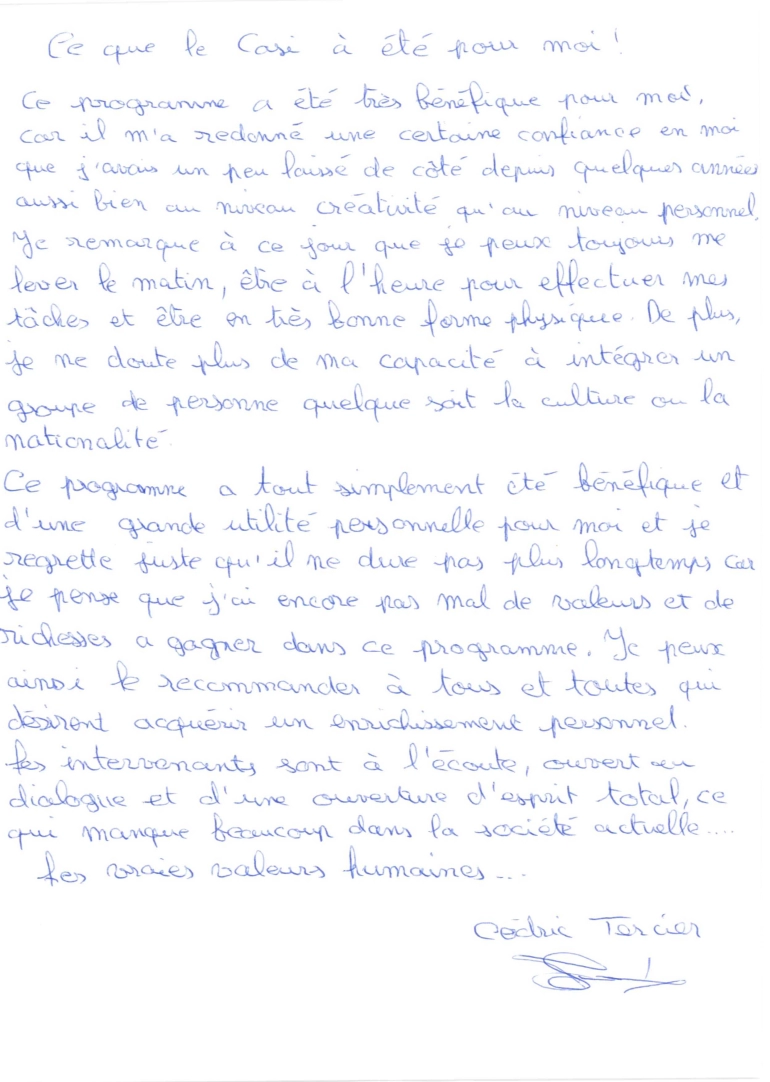 Ce que le Casi à été pour moi !
Ce programme a été très bénéfique pour moi,
car il m'a redonné une certaine confiance en moi
que j'avais un peu laissé de côté depuis quelques années
aussi bien au niveau créativité qu'au niveau personnel.
Je remarque à ce jour que je peux toujours me
lever le matin, être à l'heure pour effectuer mes
tâches et être en très bonne forme physique. De plus,
je ne doute plus de ma capacité à intégrer un
groupe de personne quelque soit la culture ou la
nationalité.
Ce programme a tout simplement été bénéfique et
d'une grande utilité personnelle pour moi et je
regrette juste qu'il ne dure pas plus longtemps car
je pense que j'ai encore pas mal de valeurs et de
richesses a gagner dans ce programme. Je peux
ainsi le recommander à tous et toutes qui
désirent acquérir un enrichissement personnel.
Les intervenants sont à l'écoute, ouvert au
dialogue et d'une ouverture d'esprit total, ce
qui manque beaucoup dans la société actuelle....
Les vraies valeurs humaines...
Cédric Tercier